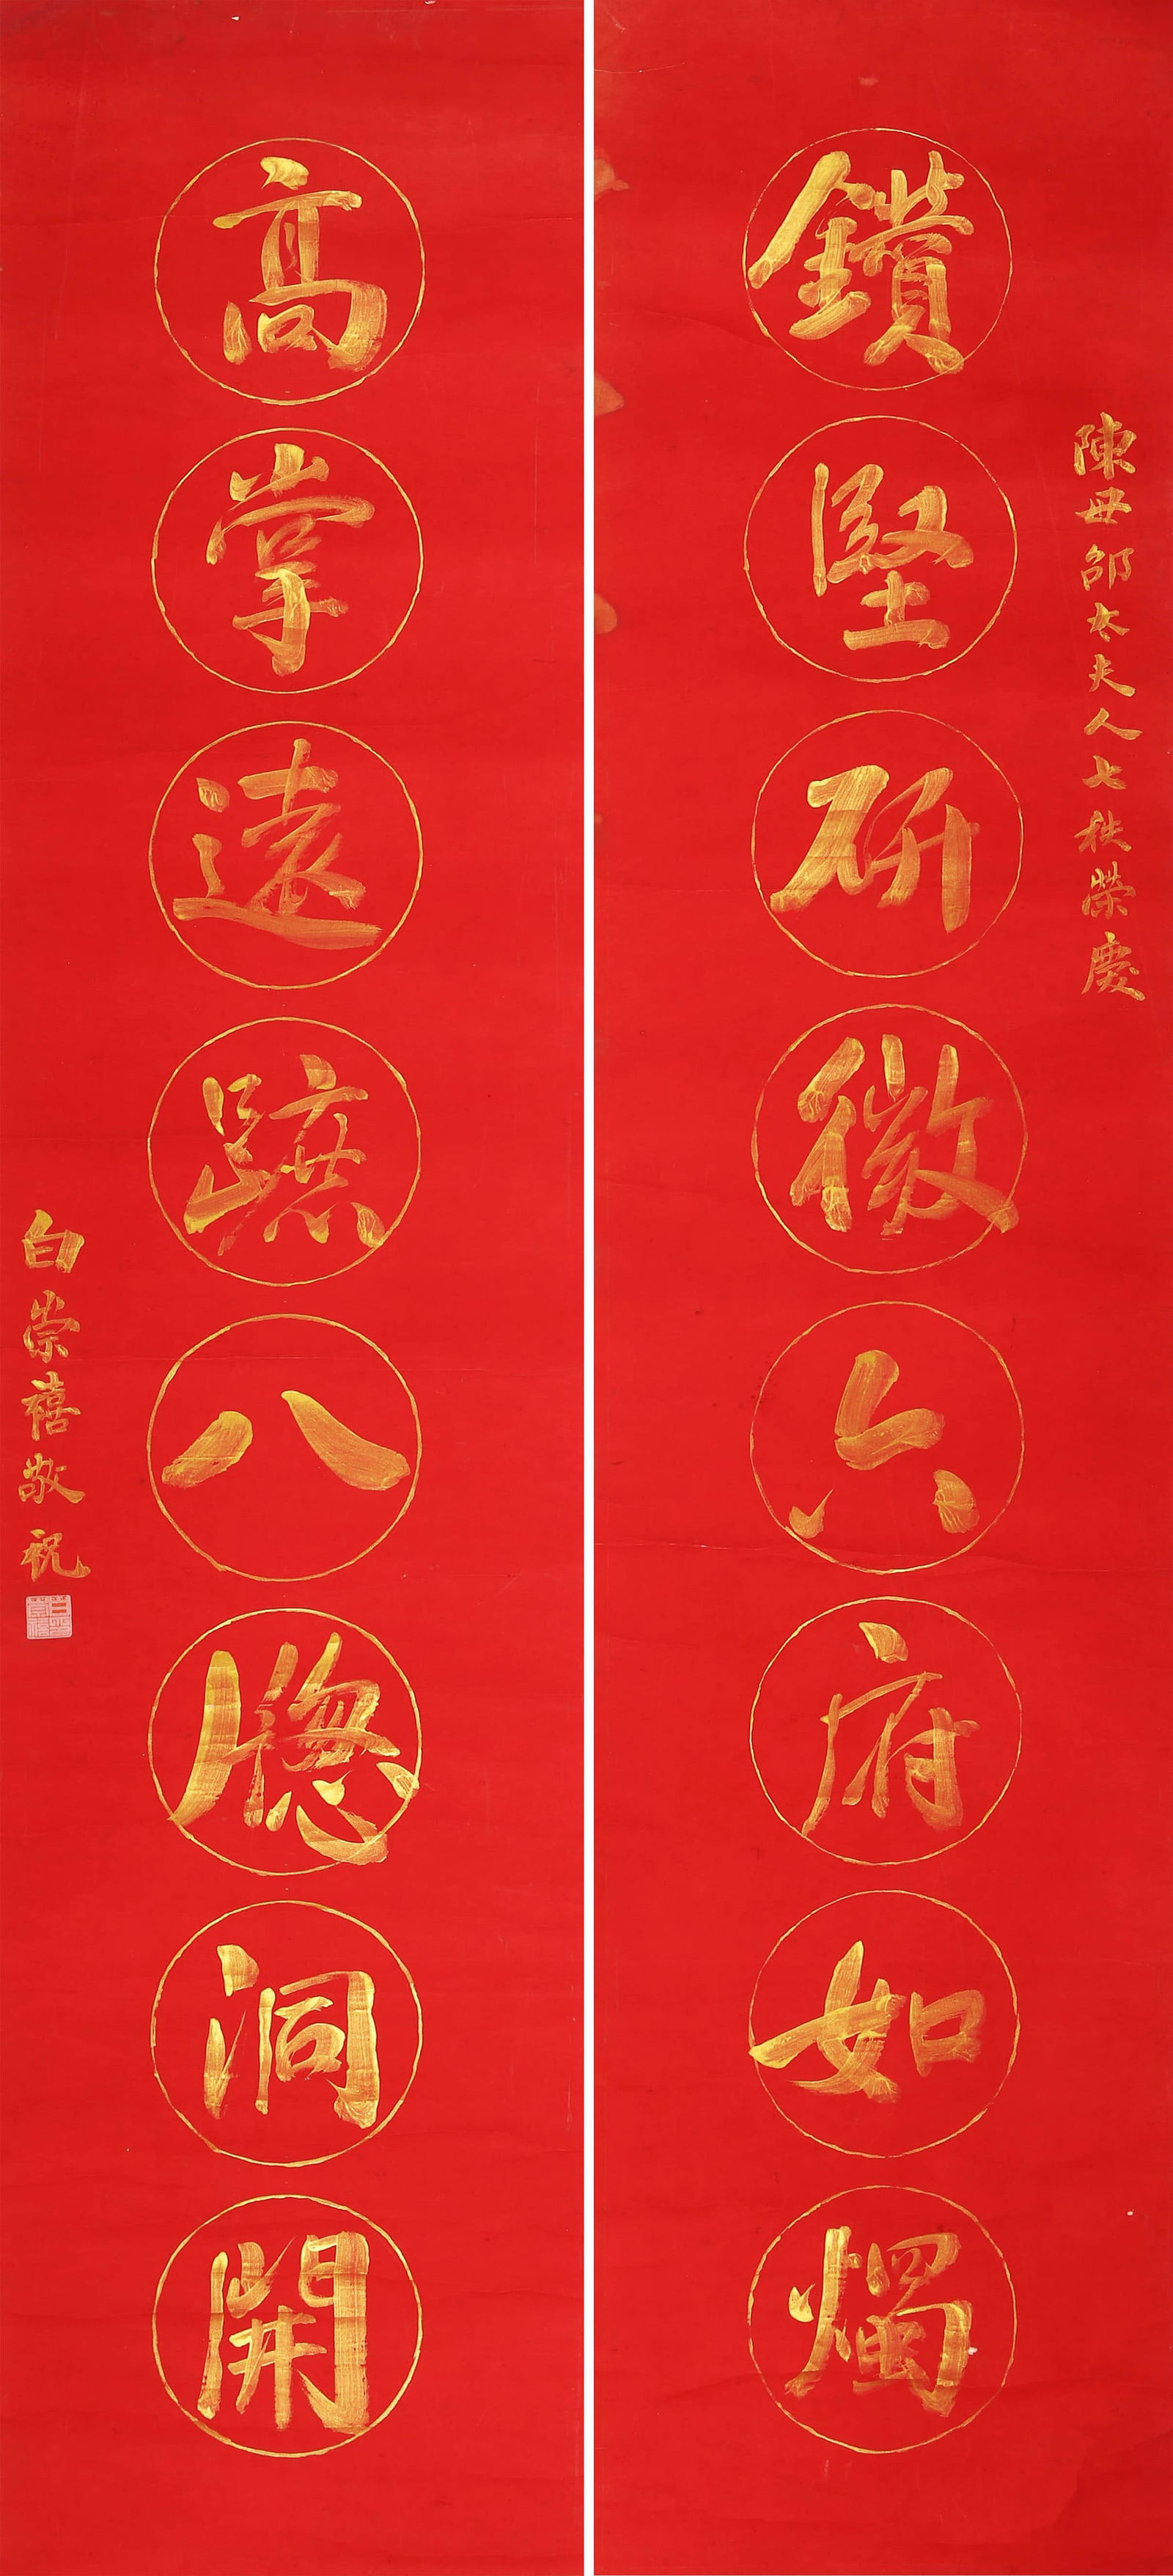 陳母邵太夫人七秩榮慶
鑽堅研微六府如燭
高掌遠蹠八牕洞開
白崇禧敬祝